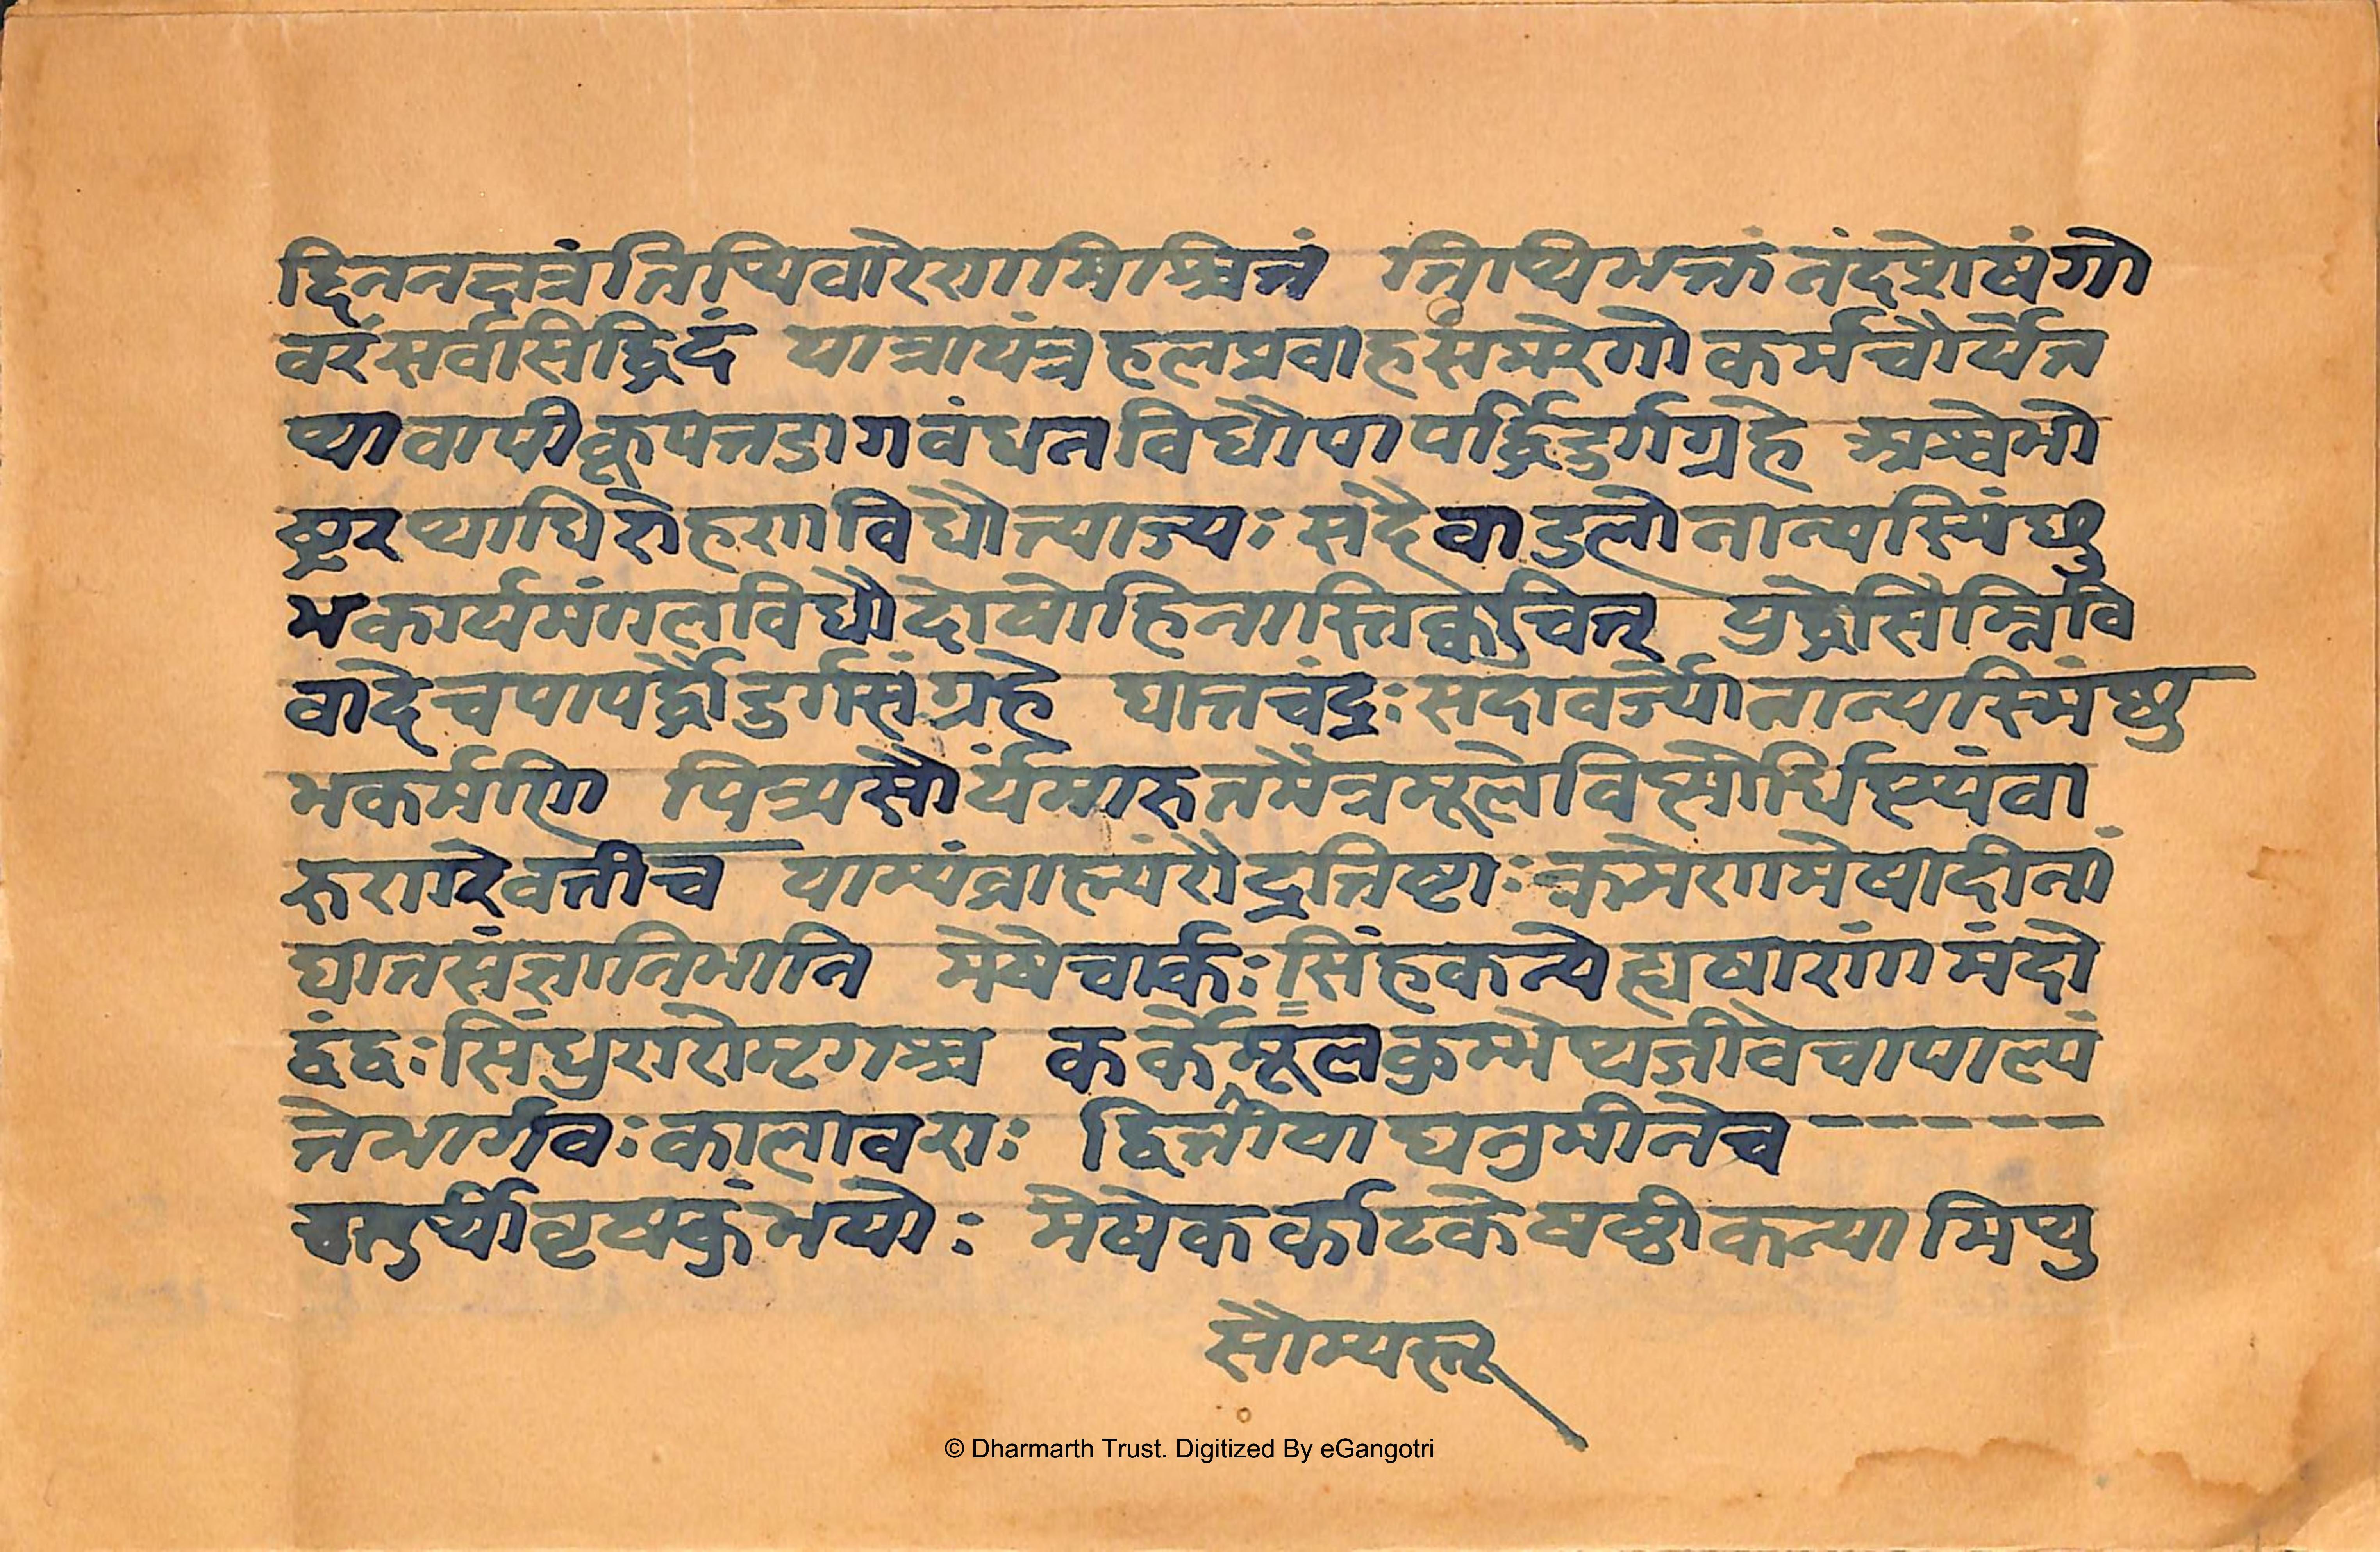 द्दिननक्षत्रं तिथिवारेणमिश्रितं तिथिभक्तं नंदशेषं गो
वरं सर्वसिद्धिदं यात्रायंत्रहलप्रवाहसमरे गो कर्मचौर्येत
था वापीकूपतडागबंधनविधौ पापर्द्धिदुर्गग्रहे अश्वेभो
ष्ट्ररथाधिरोहणविधौ त्याज्यः सदैवाडुलो नान्यस्मिंशु
भकार्यमंगलविधौ दोषोहिनास्ति क्वचित् युद्धेसिम्निवि
वादे च पापर्द्धौ दुर्गसंग्रहे घातचंद्रः सदावर्ज्यो नान्यस्मिंशु
भकर्मणि पित्र्यसौर्यमारुतमैत्रमूलेविष्णौधिष्ण्यंवा
रुणंरेवतीच याम्यंब्राह्म्यंरौद्रतिष्टाः क्रमेणमेषादीनां
घातसंज्ञानिभानि मेषेचार्कः सिंहकन्ये ह्यषाणां मंदो
द्वंद्वः सिंधुरारोमृगश्च कर्केमूलकुम्भेथजीवेचापाल्पं
ते भार्गवः कालावराः द्वितीया धनुमीनेच -----
चतुर्थीवृषकुंभयोः मेषेकर्काटकेषष्ठीकन्यामिथु
सौम्यस्तू
© Dharmarth Trust. Digitized By eGangotri